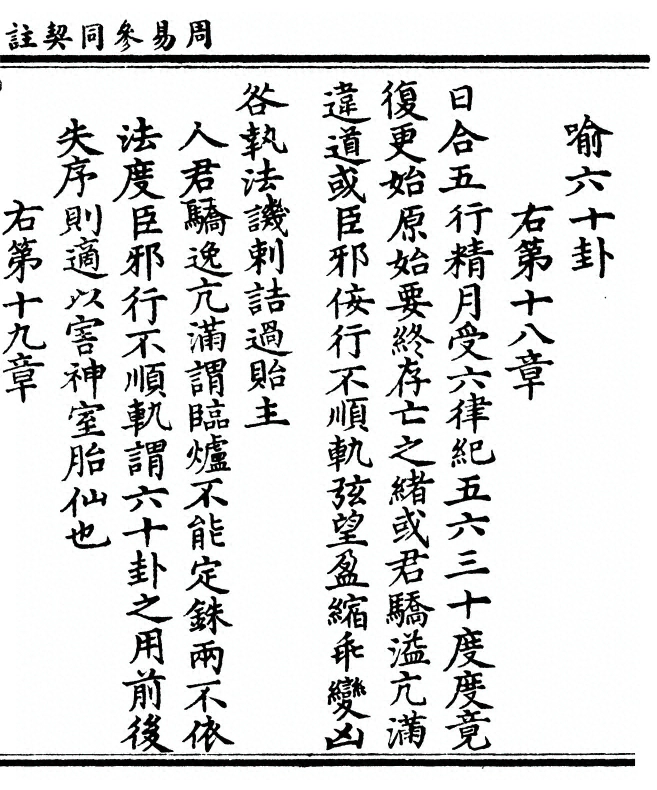 註契同參易周
喻六十卦
右第十八章
日合五行精月受六律紀五六三十度度竟
復更始原始要終存亡之緒或君驕溢亢滿
違道或臣邪佞行不順軌弦望盈縮乖變凶
咎執法譏刺詰過貽主
人君驕逸亢滿謂臨爐不能定銖兩不依
法度臣邪行不順軌謂六十卦之用前後
失序則適以害神室胎仙也
右第十九章